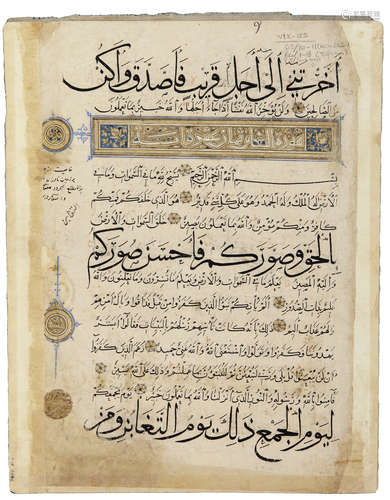 أخرتني إلى أجل قريب فأصدق وأكن
من الصالحين ولن يؤخر الله نفسا إذا جاء أجلها والله خبير بما تعملون
سورة التغابن
بسم الله الرحمن الرحيم يسبح لله ما في السموات وما في
الأرض له الملك وله الحمد وهو على كل شيء قدير هو الذي خلقكم فمنكم
كافر ومنكم مؤمن والله بما تعملون بصير خلق السموات والأرض
بالحق وصوركم فأحسن صوركم
وإليه المصير يعلم ما في السموات والأرض ويعلم ما تسرون وما تعلنون والله
عليم بذات الصدور ألم يأتكم نبأ الذين كفروا من قبل فذاقوا وبال أمرهم
ولهم عذاب أليم ذلك بأنه كانت تأتيهم رسلهم بالبينات فقالوا أبشر
يهدوننا فكفروا وتولوا واستغنى الله والله غني حميد زعم الذين كفروا
أن لن يبعثوا قل بلى وربي لتبعثن ثم لتنبؤن بما عملتم وذلك على الله يسير
فآمنوا بالله ورسوله والنور الذي أنزلنا والله بما تعملون خبير يوم يجمعكم
ليوم الجمع ذلك يوم التغابن ومن